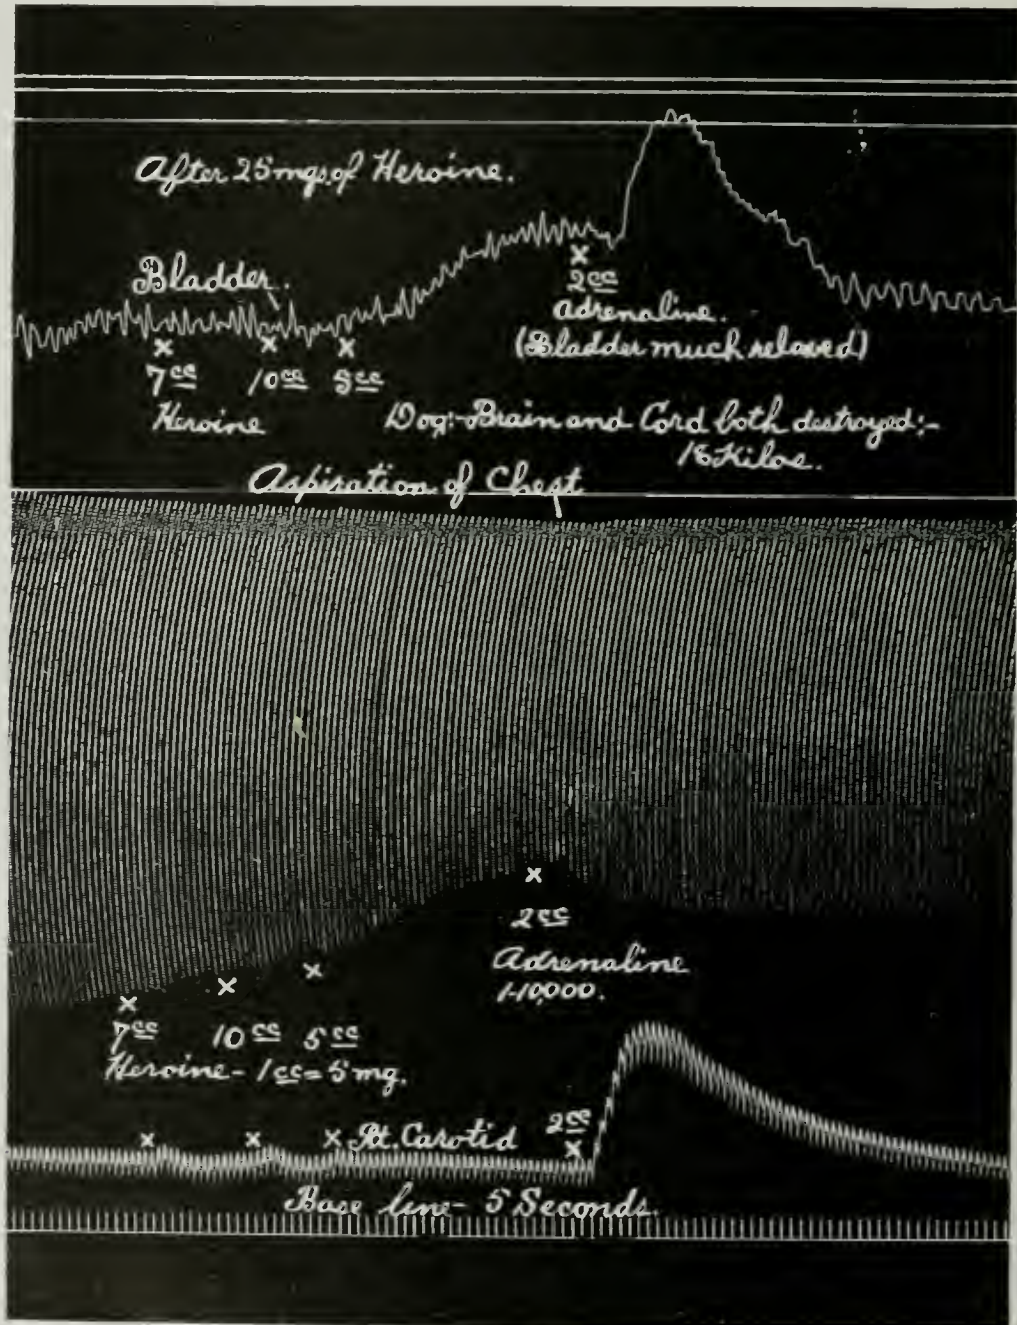 After 25 mgs. of Heroine.
Bladder.
× × × ×
7cc 10cc 5cc 2cc
Heroine Adrenaline.
(Bladder much relaxed)
Dog:- Brain and Cord both destroyed:-
18 Kilos.
Aspiration of Chest
×
2cc
Adrenaline
1-10,000.
× × ×
7cc 10cc 5cc
Heroine - 1cc = 5 mg.
× × × Rt. Carotid 2cc ×
Base line - 5 Seconds.